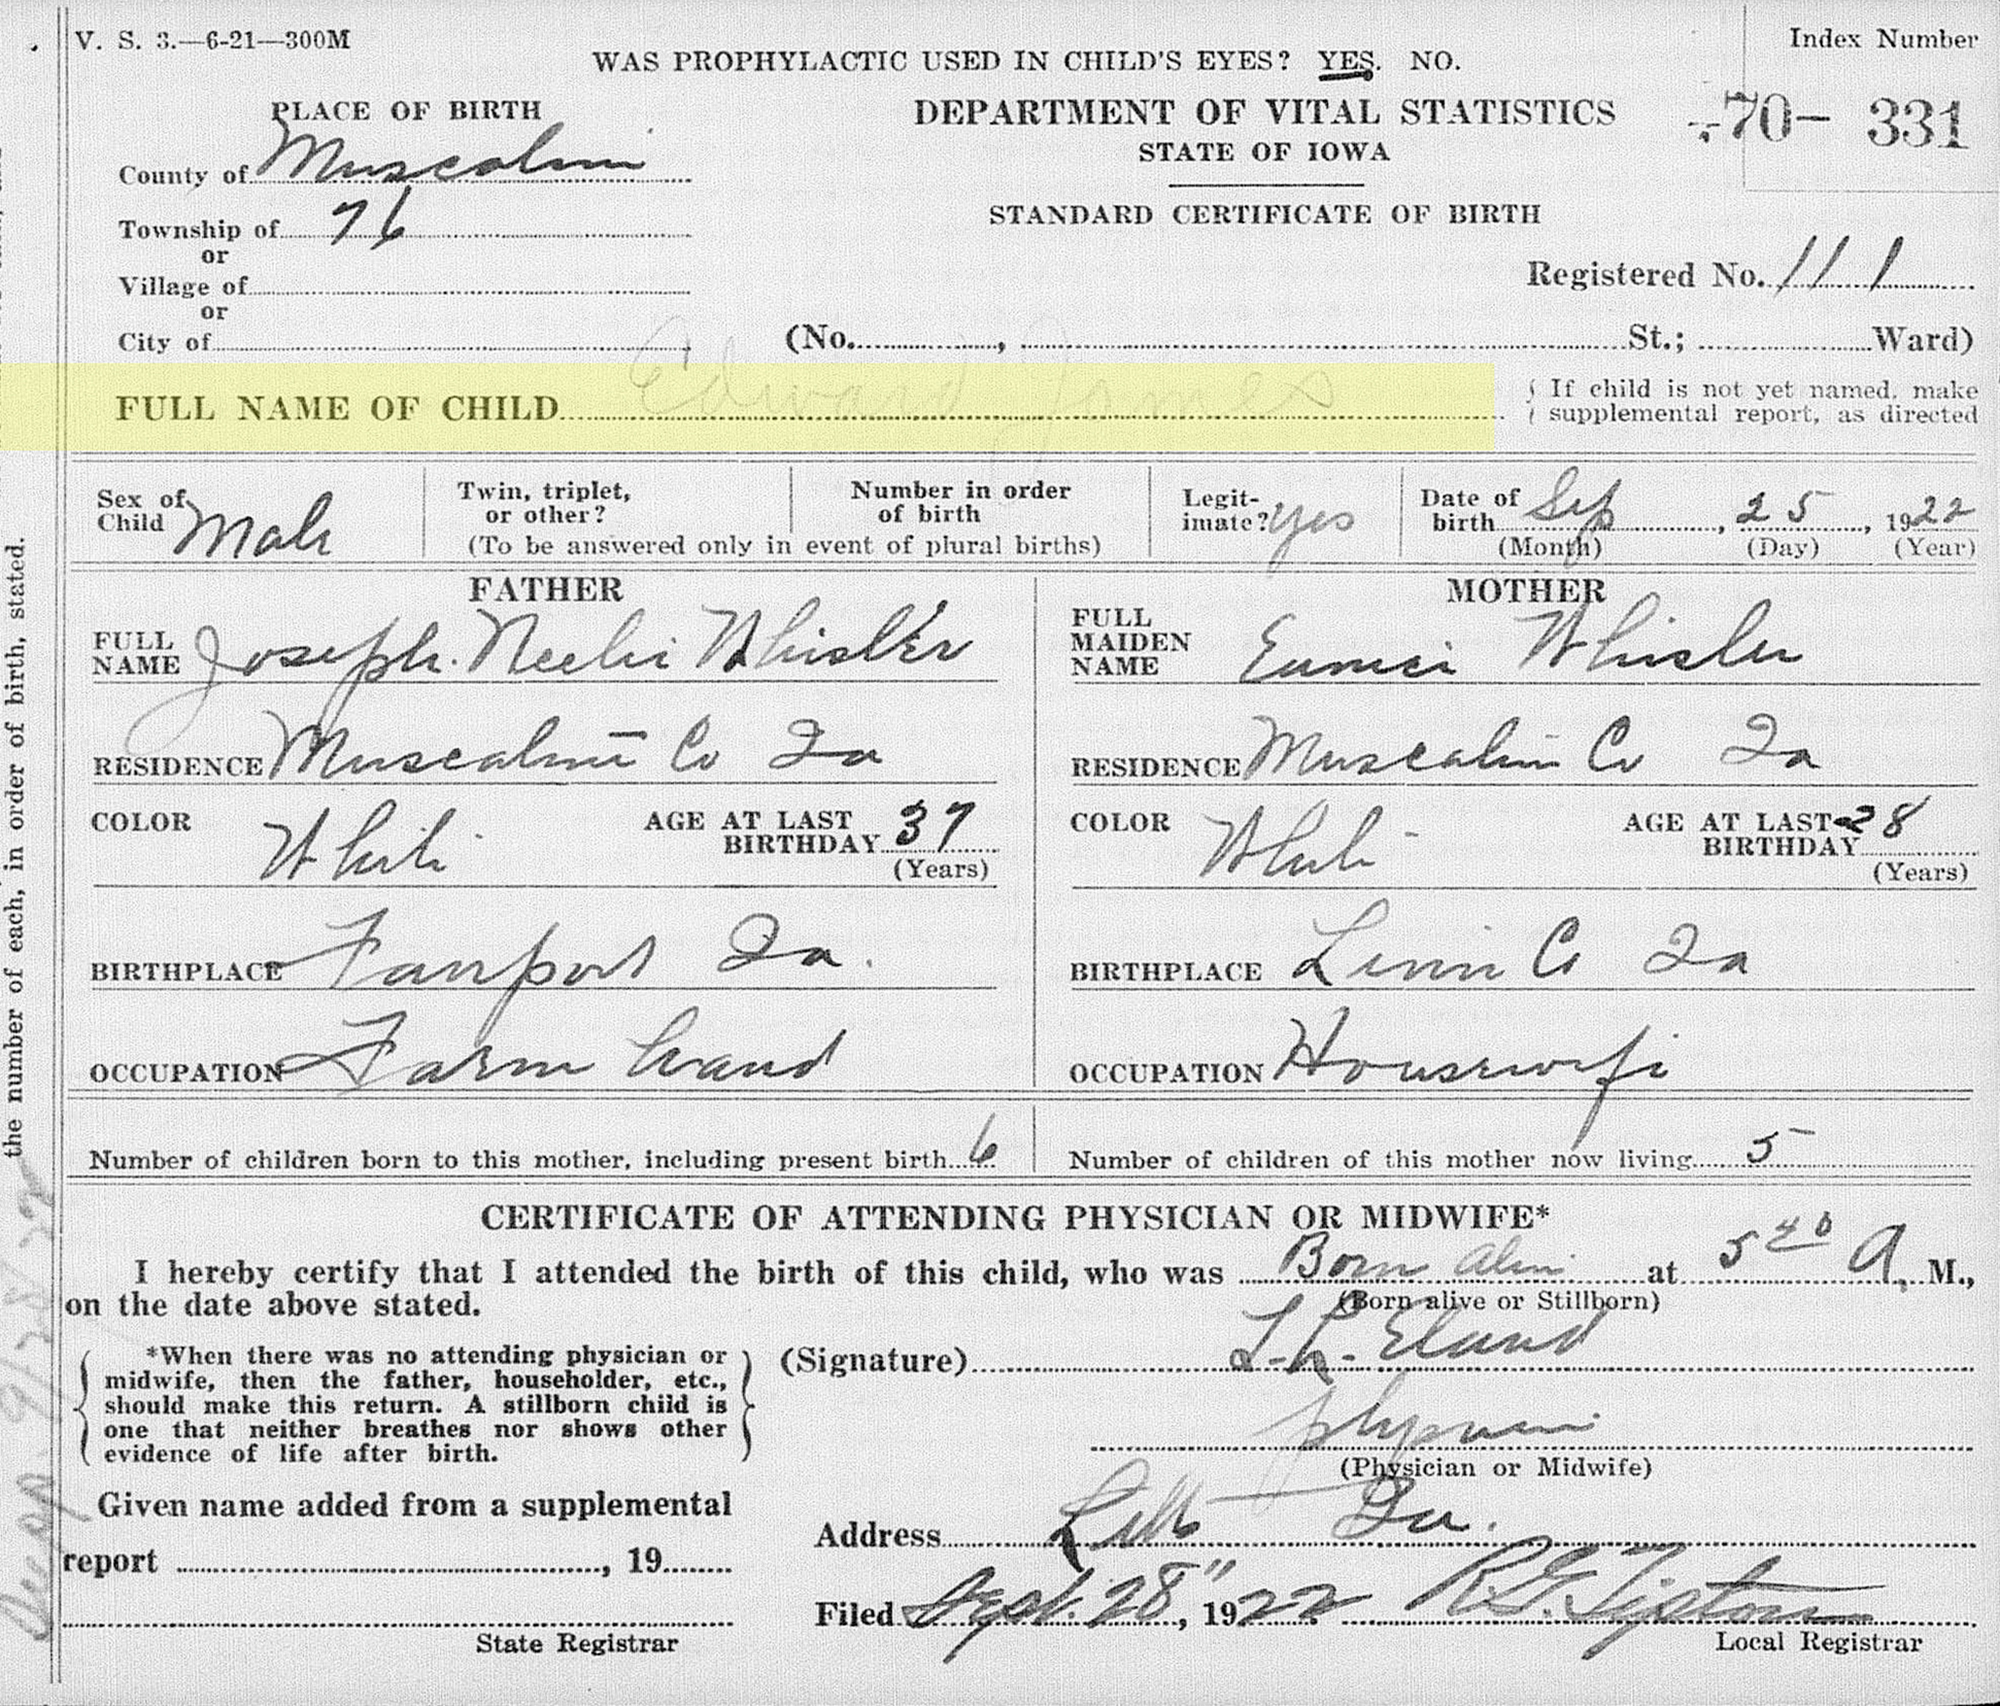 V. S. 3.—6-21—300M
Index Number
WAS PROPHYLACTIC USED IN CHILD'S EYES? YES. NO.
70— 331
PLACE OF BIRTH
DEPARTMENT OF VITAL STATISTICS
STATE OF IOWA
County of Muscatine
Township of 76
STANDARD CERTIFICATE OF BIRTH
or
Village of
Registered No. 111
or
City of
(No. , St.; Ward)
FULL NAME OF CHILD Edward James
{ If child is not yet named, make
supplemental report, as directed
Sex of Child Male
Twin, triplet, or other?
Number in order of birth
(To be answered only in event of plural births)
Legit-
imate? yes
Date of birth Sep, 25, 1922
(Month) (Day) (Year)
FATHER
FULL NAME Joseph Whisler
RESIDENCE Muscatine Co Ia
COLOR White
AGE AT LAST BIRTHDAY 37
(Years)
BIRTHPLACE Fairport Ia.
OCCUPATION Farm hand
MOTHER
FULL MAIDEN NAME Eunice Whisler
RESIDENCE Muscatine Co Ia
COLOR White
AGE AT LAST BIRTHDAY 28
(Years)
BIRTHPLACE Linn Co Ia
OCCUPATION Housewife
Number of children born to this mother, including present birth 6
Number of children of this mother now living 5
CERTIFICATE OF ATTENDING PHYSICIAN OR MIDWIFE*
I hereby certify that I attended the birth of this child, who was Born alive at 5 40 A. M.,
(Born alive or Stillborn)
on the date above stated.
*When there was no attending physician or
midwife, then the father, householder, etc.,
should make this return. A stillborn child is
one that neither breathes nor shows other
evidence of life after birth.
(Signature) L. L. Eland
physician
(Physician or Midwife)
Given name added from a supplemental
report , 19
State Registrar
Address Letts Ia.
Filed Sept. 28", 1922 R. G. Tipton
Local Registrar
the number of each, in order of birth, stated.
9/28/22